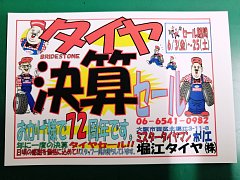 タイヤ
BRIDGESTONE
セール期間
6/3(金)～25(土)
決算
セール
おかげ様で72周年です。
06-6541-0982
年に一度の決算タイヤセール!!
ミスタータイヤマン 堀江
堀江タイヤ(株)